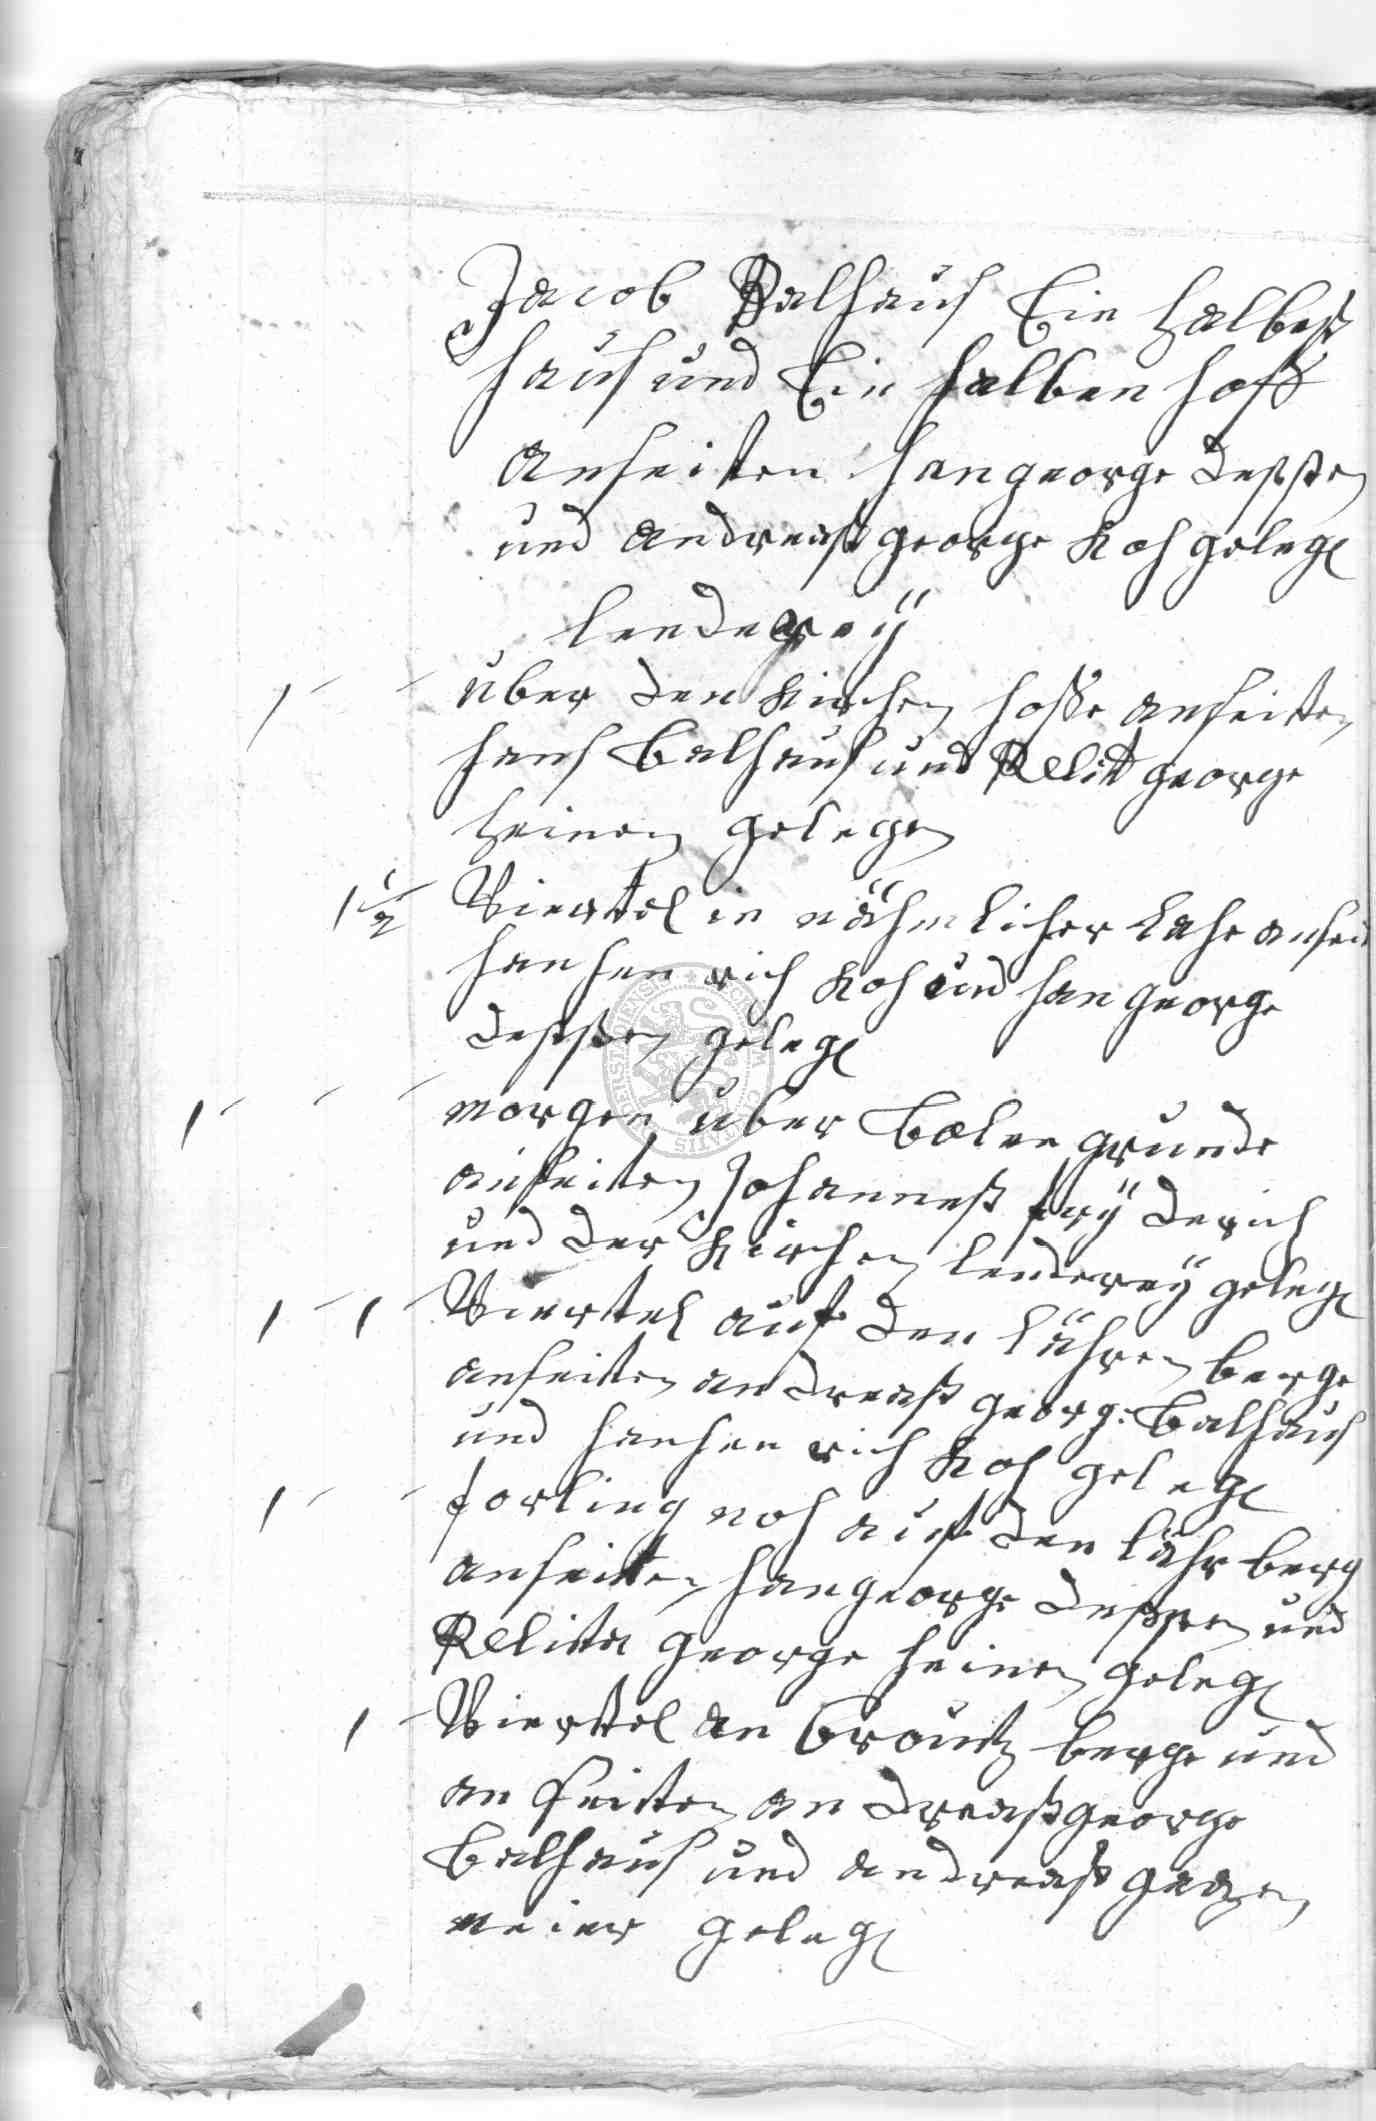 Jacob Balhaus Ein halbeß
hauß und Ein halben hoff
anseiten hangeorge Deppen
und andreaß george Koh geleg
lenderey
1 - - uber den Kirchen hoffe anseiten
hanß Balhauß und Relict george
heinen gelegen
1 1/2 Viertel in nähmlicher lahe ansei
hanhenrich Koh und hangeorge
Deppen geleg
1 - - - morgen uber Bolen grunde
anseiten Johanneß frÿ Derich
und der Kirchen lenderey geleg
1 - 1 - Viertel auf den lühren berge
anseiten andreaß george Balhauß
und hanhenrich Koh geleg
1 - - forling noh auf den lühr berg
anseiten hangeorge Deppen und
Relicta george heinen geleg
1 - Viertel an berge und
an seiten andreaß george
Balhauß und andreaß
meier geleg